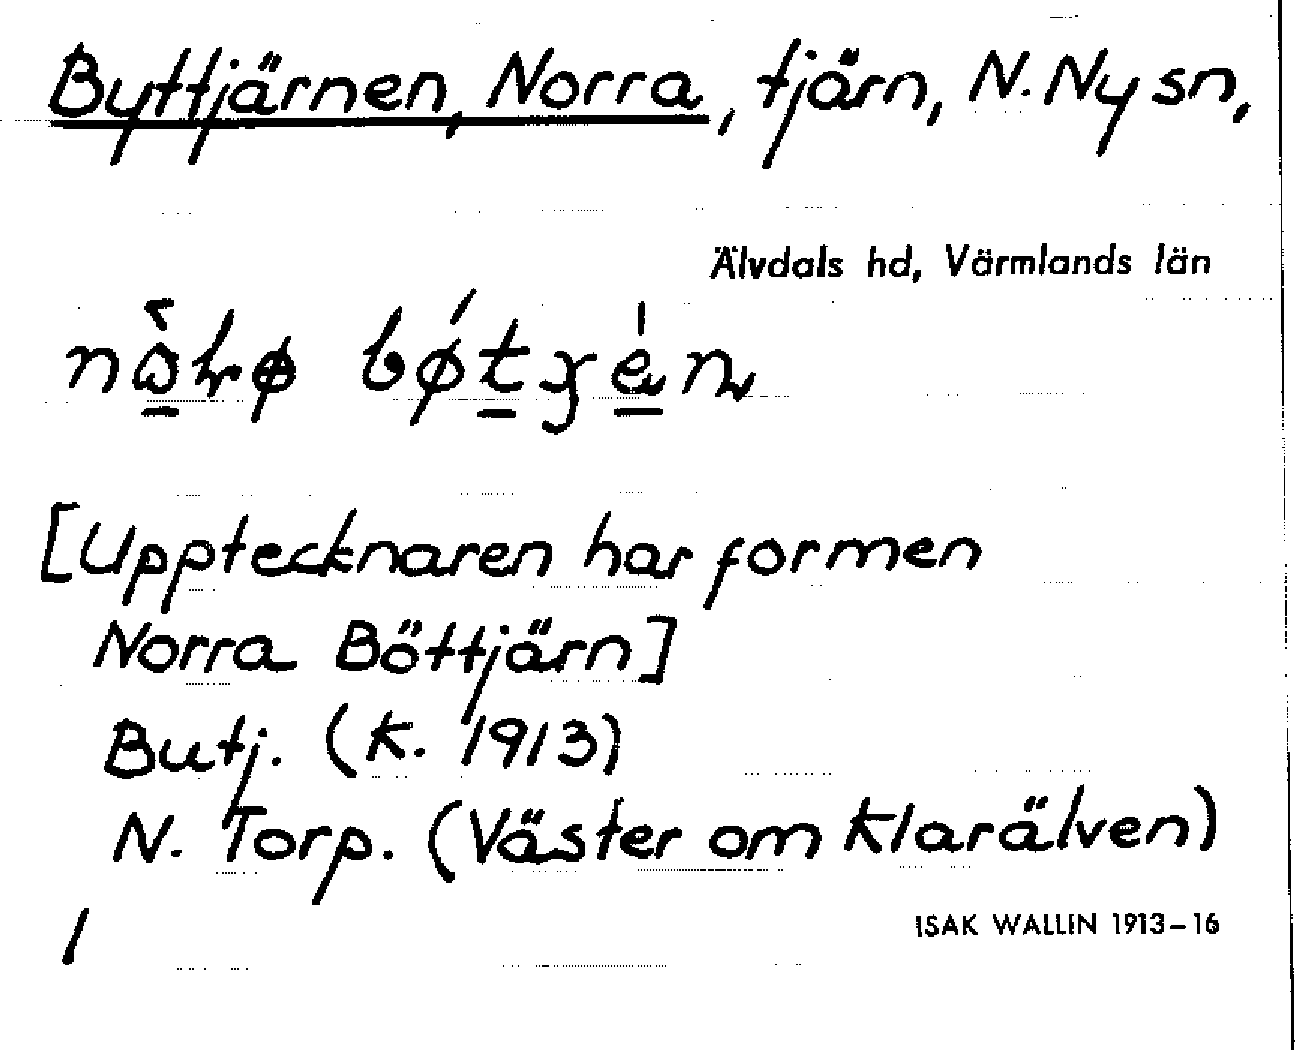 Byttjärnen, Norra, tjärn, N. Ny sn,
Älvdals hd, Värmlands län
[Upptecknaren har formen
Norra Böttjärn]
Butj. (K. 1913)
N. Torp. (Väster om Klarälven)
1
ISAK WALLIN 1913-16